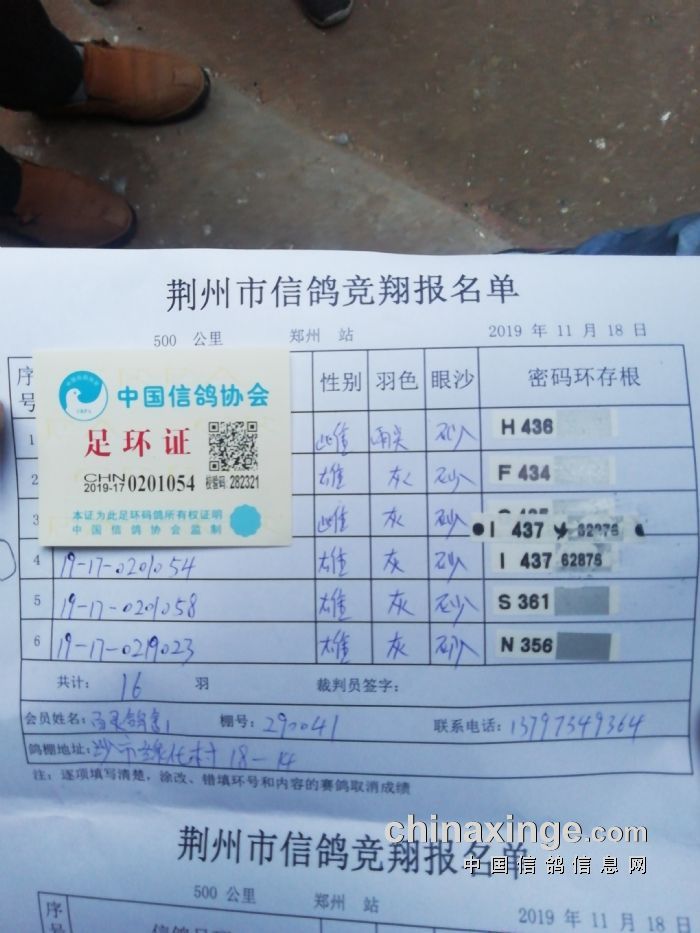 荆州市信鸽竞翔报名单
500 公里 郑州 站 2019 年 11 月 18 日
序号 性别 羽色 眼沙 密码环存根
中国信鸽协会
足环证
CHN
2019-17 0201054 校验码: 282321
本证为此足环码鸽所有权证明
中国信鸽协会监制
1 雌 雨 砂 H 436
2 雄 灰 砂 F 434
3 雌 灰 砂
I 437 62876
4 19-17-0201054 雄 灰 砂 I 437 62876
5 19-17-0201058 雄 灰 砂 S 361
6 19-17-0219023 雄 灰 砂 N 356
共计: 16 羽 裁判员签字:
会员姓名: 棚号: 290041 联系电话: 13797349364
鸽棚地址: 沙市 村 18-14
注: 逐项填写清楚, 涂改、错填环号和内容的赛鸽取消成绩
chinaxinge.com
中国信鸽信息网
荆州市信鸽竞翔报名单
500 公里 郑州 站 2019 年 11 月 18 日
序号